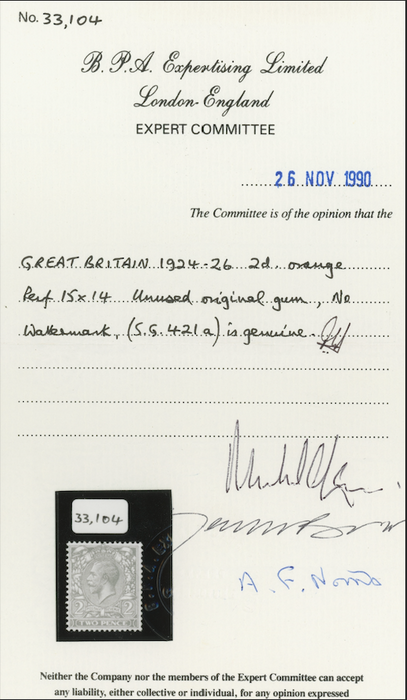 No. 33,104
B. P. A. Expertising Limited
London-England
EXPERT COMMITTEE
26 NOV 1990
The Committee is of the opinion that the
GREAT BRITAIN 1924-26 2d. orange
Perf 15x14 Unused original gum, No
Watermark, (S.G. 421a) is genuine.
33,104
2 2
TWO PENCE
A. F. Norris
Neither the Company nor the members of the Expert Committee can accept
any liability, either collective or individual, for any opinion expressed